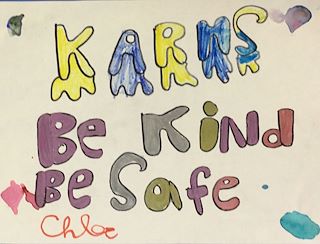 KARNS
Be Kind
Be Safe
Chloe